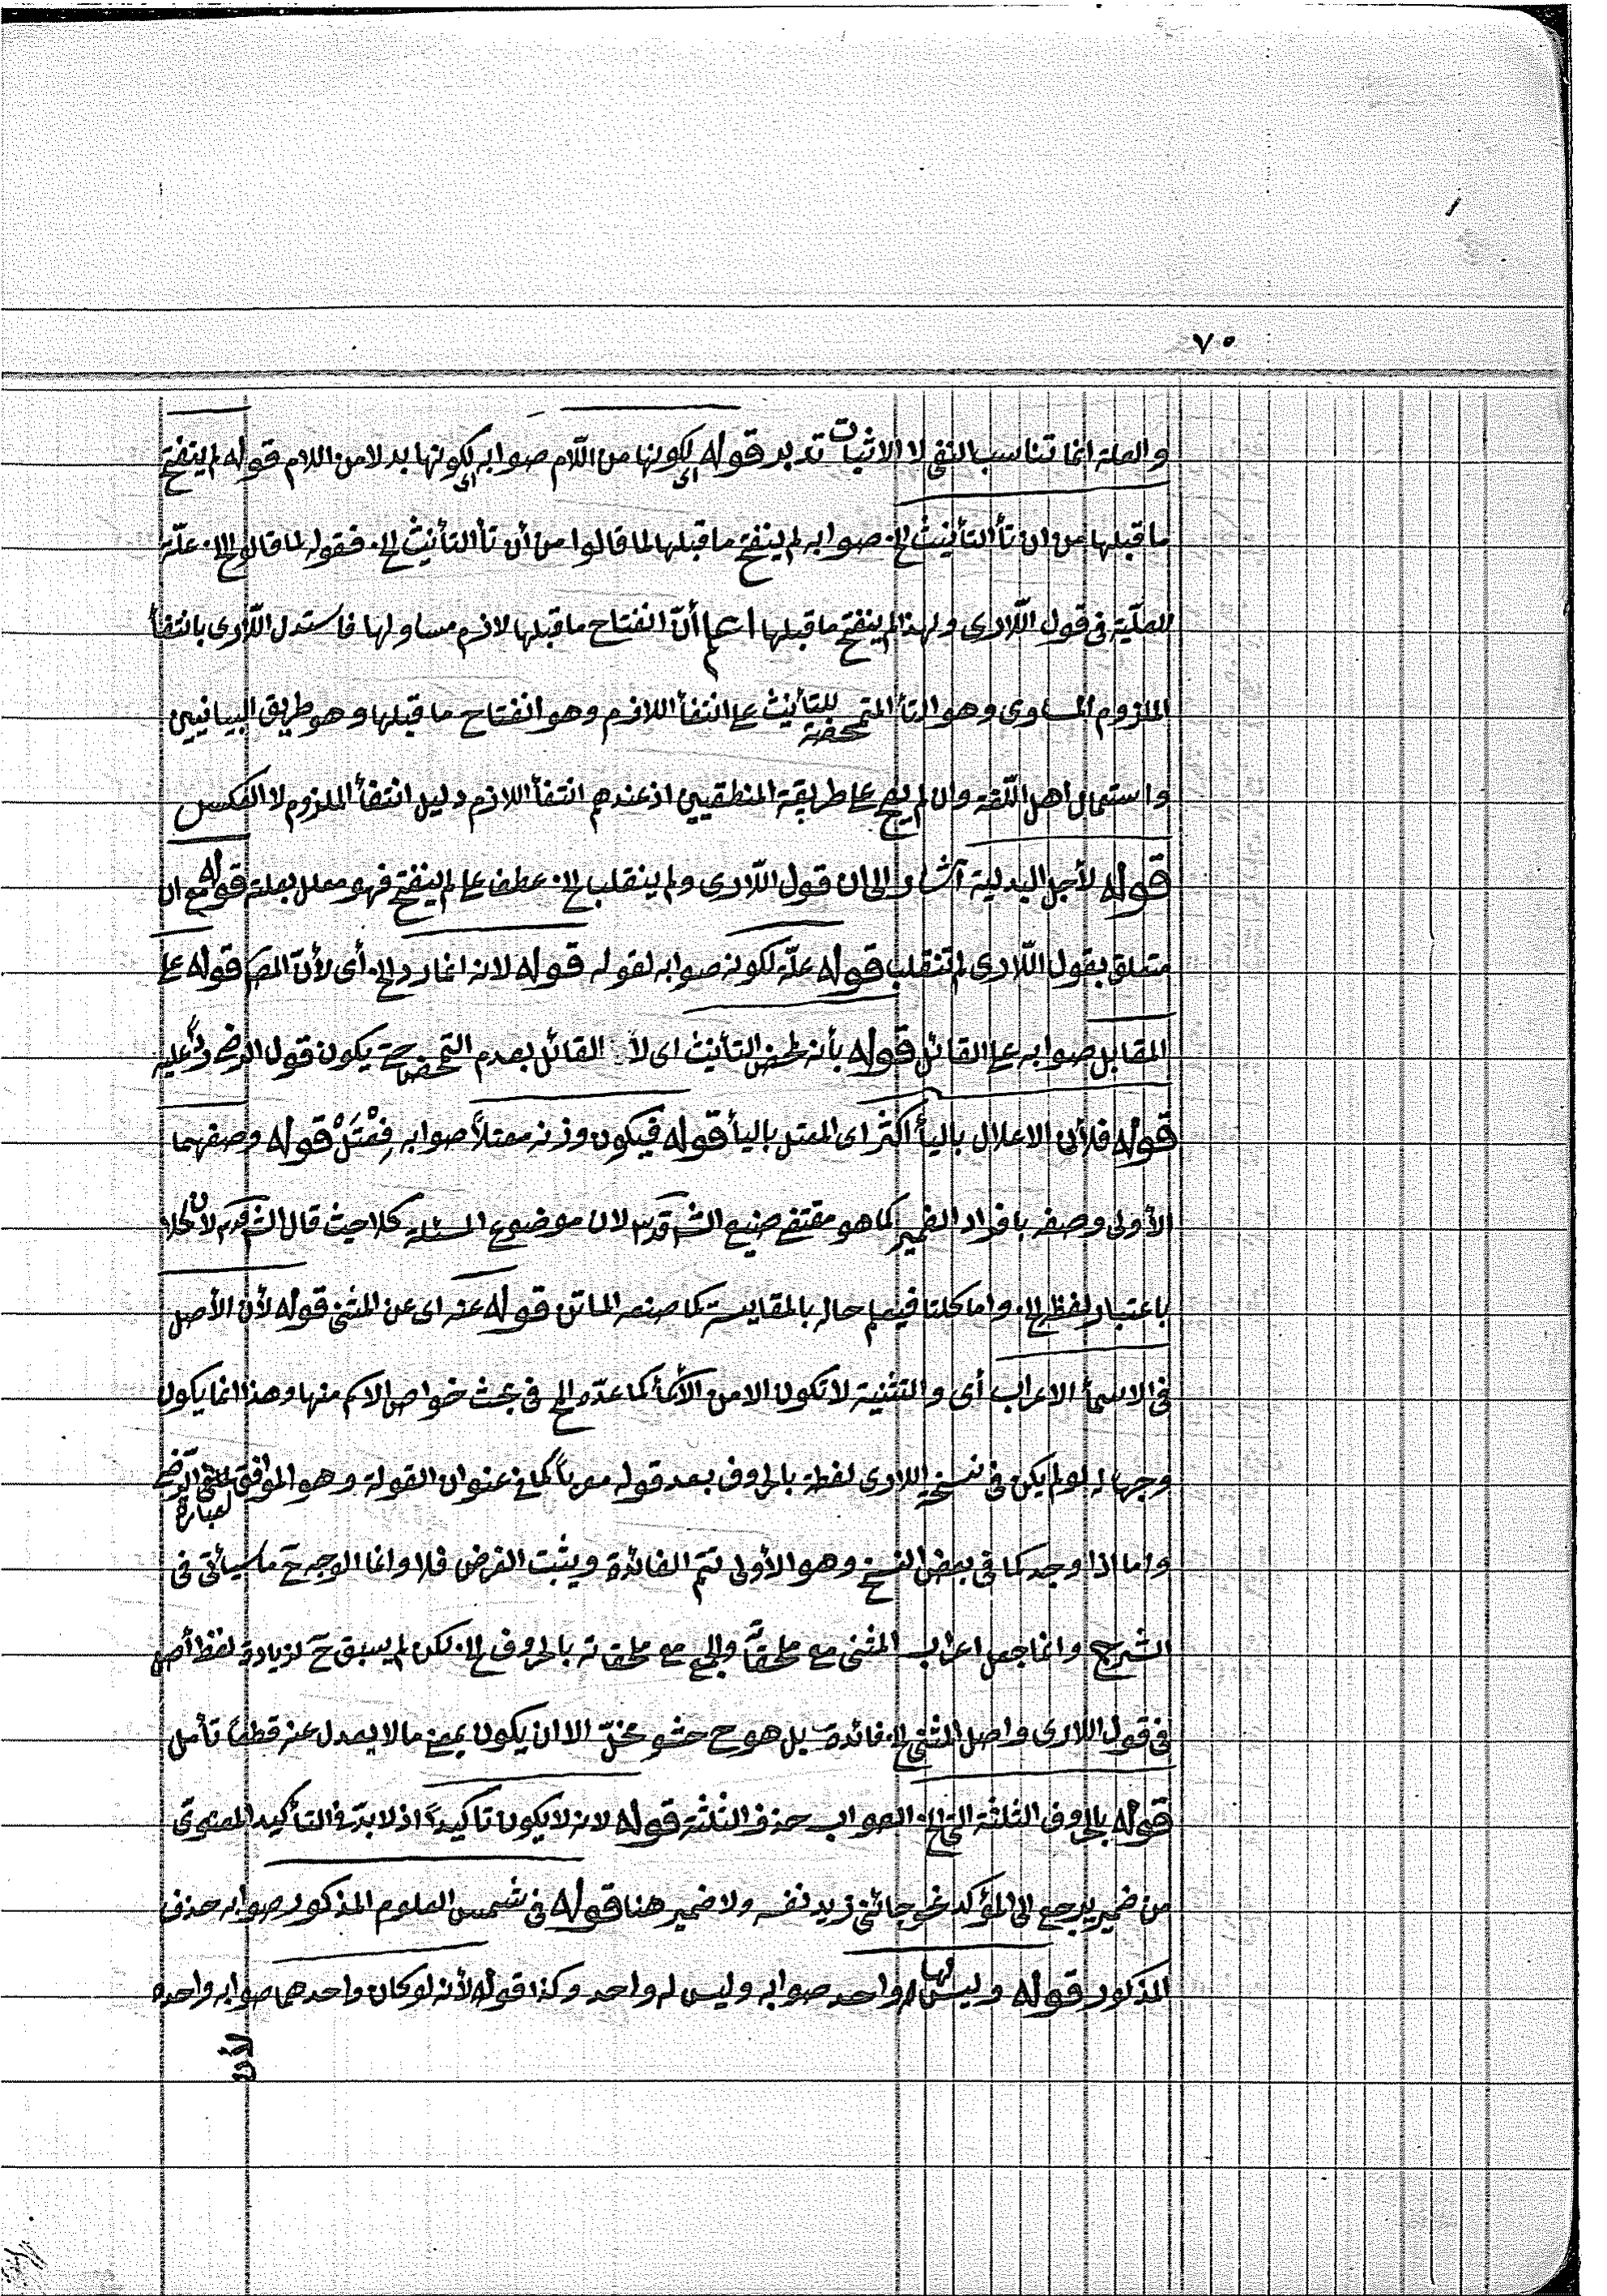 ٧٠
والعلة انما تناسب النفى لا الاثبات تدبر قوله اى لكونها من اللّام صوابه اى لكونها بدلا من اللام قوله لم ينفتح
ما قبلها من ان تأ التأنيث الخ صوابه لم ينفتح ما قبلها لما قالوا من أن تأ التأنيث الخ. فقوله لما قالوا الخ. علّة
للعلّية فى قول اللّارى ولهذا لم ينفتح ما قبلها اعلم أنّ انفتاح ما قبلها لازم مساو لها فاستدل اللّارى بانتفأ
الملزوم المساوى وهو التأ المتمحضة للتأنيث على انتفأ اللازم وهو انفتاح ما قبلها وهو طريق البيانيين
واستعمال اهل اللّغة وان لم يصح على طريقة المنطقيين اذ عندهم انتفأ اللازم دليل انتفأ الملزوم لا العكس
قوله لأجل البدلية أشار الى ان قول اللّارى ولم ينقلب الخ. عطف على لم ينفتح فهو معلل بعلته قوله مع ان
متعلق بقول اللّارى لم تنقلب قوله علّة لكونه صوابه لقوله قوله لانه انما رد الخ. أى لأنّ المصـ قوله على
المقابل صوابه على القائل قوله بأنه لمحض التأنيث اى لا القائل بعدم التمحض حتى يكون قول الرضى ردًّا عليه
قوله فلأن الاعلال باليأ اكثر اى المعتل باليأ قوله فيكون وزنه معتلاً صوابه فِعْتَلْ قوله وصفهما
الأولى وصفه بافراد الضمير كما هو مقتضى صنيع الشـ قدس لان موضوع المسئلة كلا حيث قال الشـ قدس لان كلا
باعتبار لفظه الخ. واما كلتا فيعلم حاله بالمقايسة كما صنعه الماتن قوله عنه اى عن المثنى قوله لأن الأصل
فى الاسمأ الاعراب أى والتثنية لا تكون الا من الأسمأ كما عدّه الخ فى بحث خواص الاسم منها وهذا انما يكون
وجها له لو لم يكن فى نسخة اللارى لفظة بالحروف بعد قوله معرباً كما فى عنوان القولة وهو الموافق لعبارة الرّضى
واما اذا وجد كما فى بعض النسخ وهو الأولى تتم الفائدة ويثبت الغرض فلا وانما الوجه ح ما سيأتى فى
الشرح وانما جعل اعراب المثنى مع ملحقاته والجمع مع ملحقاته بالحروف الخ. لكن لم يبق ح لزيادة لفظ أصل
فى قول اللارى واصل المثنى الخ. فائدة بل هو ح حشو مخلّ الا ان يكون بمعنى ما لا يعدل عنه قطعًا تأمل
قوله بالحروف الثلثة التى الخ. الصواب حذف الثلثة قوله لانه لا يكون تأكيداً اذ لا بدّ فى التأكيد المعنوى
من ضمير يرجع الى المؤكد نحو جائنى زيد نفسه ولا ضمير هنا قوله فى شمس العلوم المذكور صوابه حذف
المذكور قوله وليس لها واحد صوابه وليس له واحد وكذا قوله لأنه لو كان واحدهما صوابه واحده